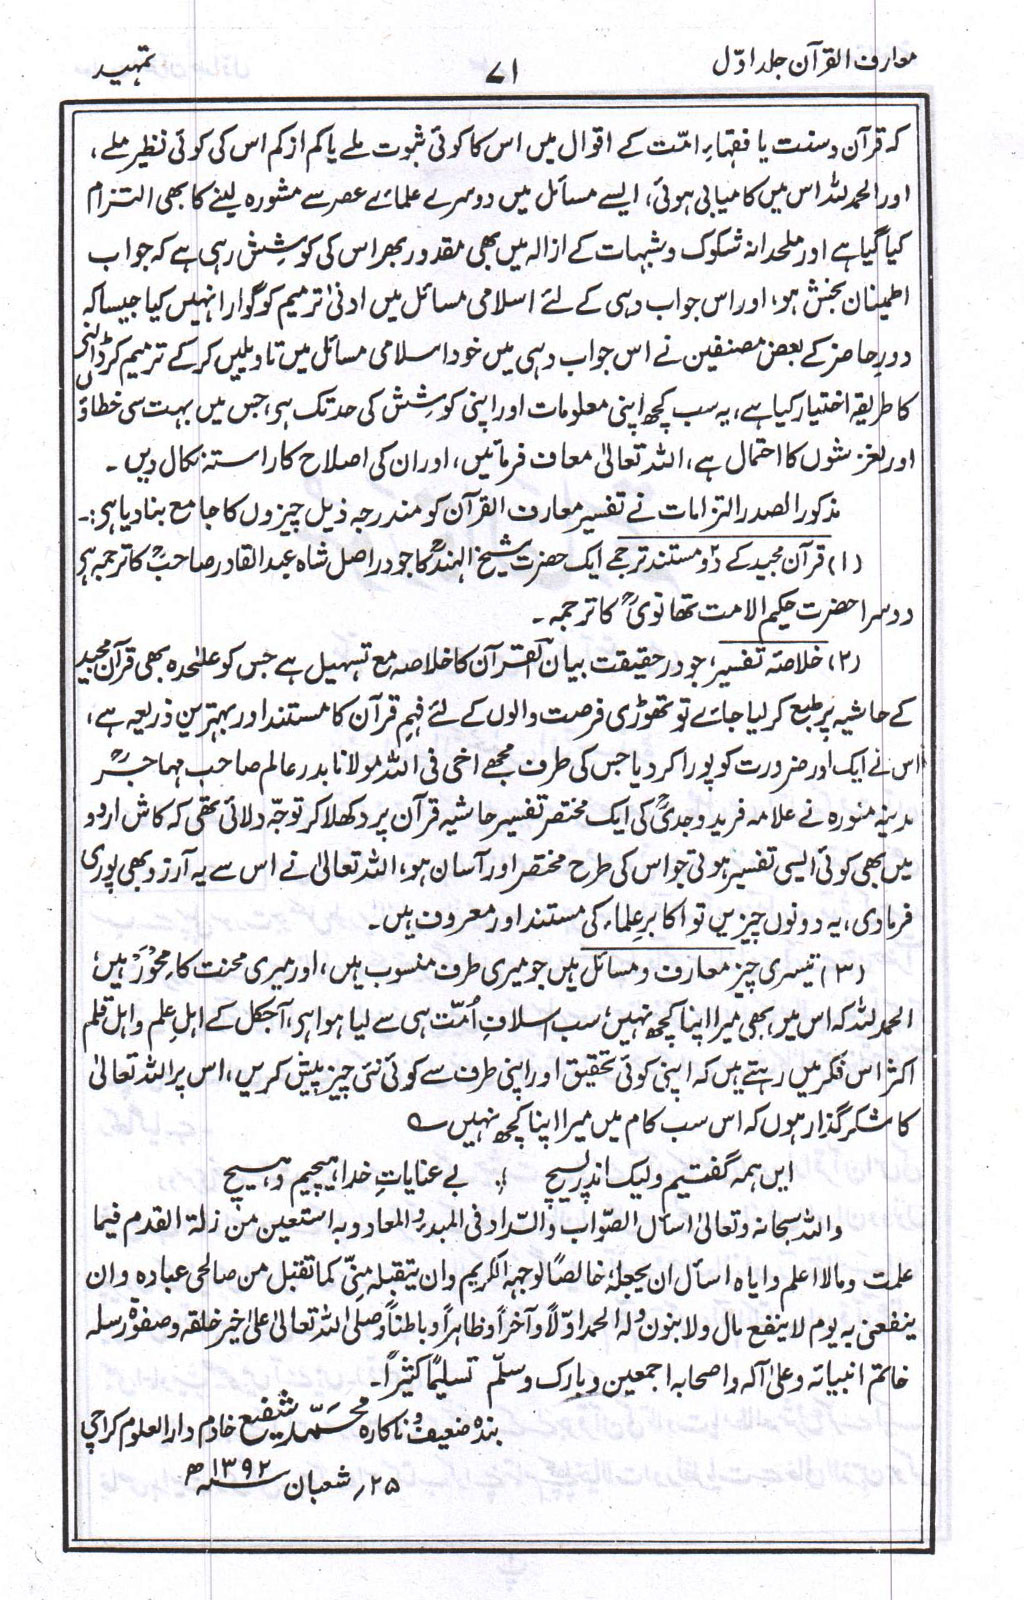 معارف القرآن جلد اوّل
۷۱
تمہید
کہ قرآن و سنت یا فقہاءِ امّت کے اقوال میں اس کا کوئی ثبوت ملے یا کم از کم اس کی کوئی نظیر ملے،
اور الحمد للہ اس میں کامیابی ہوئی، ایسے مسائل میں دوسرے علمائے عصر سے مشورہ لینے کا بھی التزام
کیا گیا ہے اور ملحدانہ شکوک و شبہات کے ازالہ میں بھی مقدور بھر اس کی کوشش رہی ہے کہ جواب
اطمینان بخش ہو، اور اس جواب دہی کے لئے اسلامی مسائل میں ادنیٰ ترمیم کو گوارا نہیں کیا جیسا کہ
دورِ حاضر کے بعض مصنفین نے اس جواب دہی میں خود اسلامی مسائل میں تاویلیں کر کے ترمیم کر ڈالنے
کا طریقہ اختیار کیا ہے، یہ سب کچھ اپنی معلومات اور اپنی کوشش کی حد تک ہی، جس میں بہت سی خطاؤں
اور لغزشوں کا احتمال ہے، اللہ تعالیٰ معاف فرمائیں، اور ان کی اصلاح کا راستہ نکال دیں۔
مذکور الصدر التزامات نے تفسیر معارف القرآن کو مندرجہ ذیل چیزوں کا جامع بنا دیا ہی:۔
(۱) قرآن مجید کے دو مستند ترجمے ایک حضرت شیخ الہندؒ کا جو دراصل شاہ عبد القادر صاحبؒ کا ترجمہ ہی
دوسرا حضرت حکیم الامت تھانویؒ کا ترجمہ۔
(۲) خلاصۂ تفسیر، جو درحقیقت بیان القرآن کا خلاصہ مع تسہیل ہے جس کو علٰحدہ بھی قرآن مجید
کے حاشیہ پر طبع کر لیا جائے تو تھوڑی فرصت والوں کے لئے فہمِ قرآن کا مستند اور بہترین ذریعہ ہے،
اس نے ایک اور ضرورت کو پورا کر دیا جس کی طرف مجھے اخی فی اللہ مولانا بدر عالم صاحب مہاجرؒ
مدینہ منورہ نے علامہ فرید وجدیؒ کی ایک مختصر تفسیر حاشیہ قرآن پر دکھلا کر توجّہ دلائی تھی کہ کاش اردو
میں بھی کوئی ایسی تفسیر ہوتی جو اس کی طرح مختصر اور آسان ہو، اللہ تعالیٰ نے اس سے یہ آرزو بھی پوری
فرما دی، یہ دونوں چیزیں تو اکابر علماء کی مستند اور معروف ہیں۔
(۳) تیسری چیز معارف و مسائل ہیں جو میری طرف منسوب ہیں، اور میری محنت کا محْوَر ہیں،
الحمد للہ کہ اس میں بھی میرا اپنا کچھ نہیں، سب اسلافِ اُمّت ہی سے لیا ہوا ہی، آجکل کے اہلِ علم و اہلِ قلم
اکثر اس فکر میں رہتے ہیں کہ اپنی کوئی تحقیق اور اپنی طرف سے کوئی نئی چیز پیش کریں، اس پر اللہ تعالیٰ
کا شکر گذار ہوں کہ اس سب کام میں میرا اپنا کچھ نہیں ؎
ایں ہمہ گفتیم ولیک اندر بسیچ ؛ بے عنایاتِ خدا ہیچیم و ہیچ
واللہ سبحانہ وتعالیٰ اسأل الصواب والسّداد فی المبدء والمعاد وبہ استعین من زلۃ القدم فیما
علمت ومالا اعلم وایاہ اسأل ان یجعلہٗ خالصًا لوجہہ الکریم وان یتقبلہ منّی کما تقبل من صالحی عبادہ وان
ینفعنی بہ یوم لا ینفع مال ولا بنون ولہ الحمد اوّلًا وآخراً وظاہراً وباطناً وصلی اللہ تعالیٰ علیٰ خیر خلقہ وصفوۃ رسلہ
خاتم انبیائہ وعلیٰ آلہ واصحابہ اجمعین وبارک وسلّم تسلیمًا کثیرًا۔
بندہ ضعیف و ناکارہ محمّد شفیع خادم دار العلوم کراچی
۲۵؍ شعبان سنہ ۱۳۹۲ھ